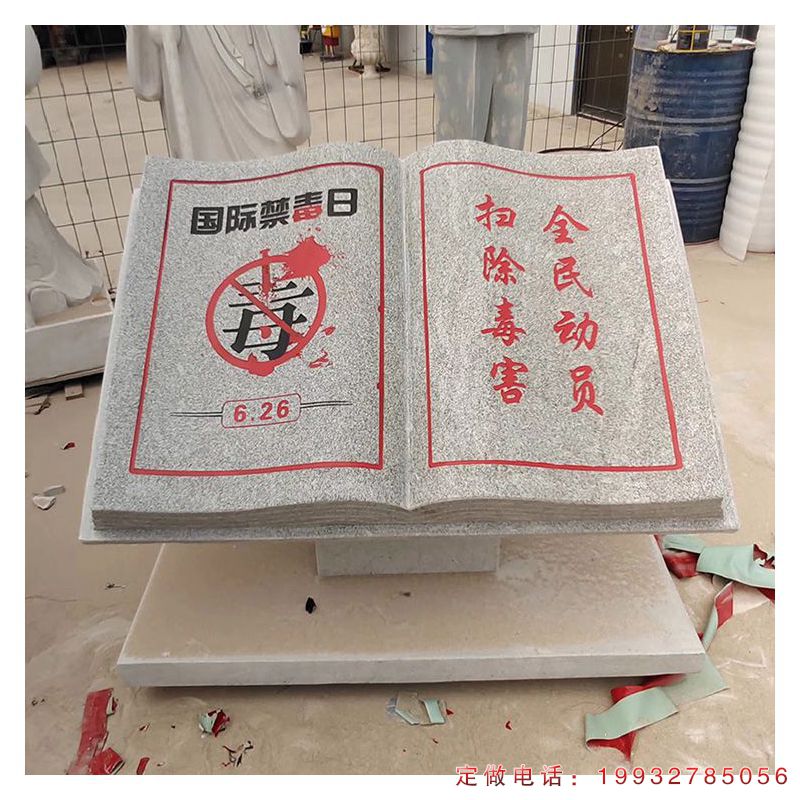 国际禁毒日
毒
6.26
全民动员
扫除毒害
定做电话：19932785056